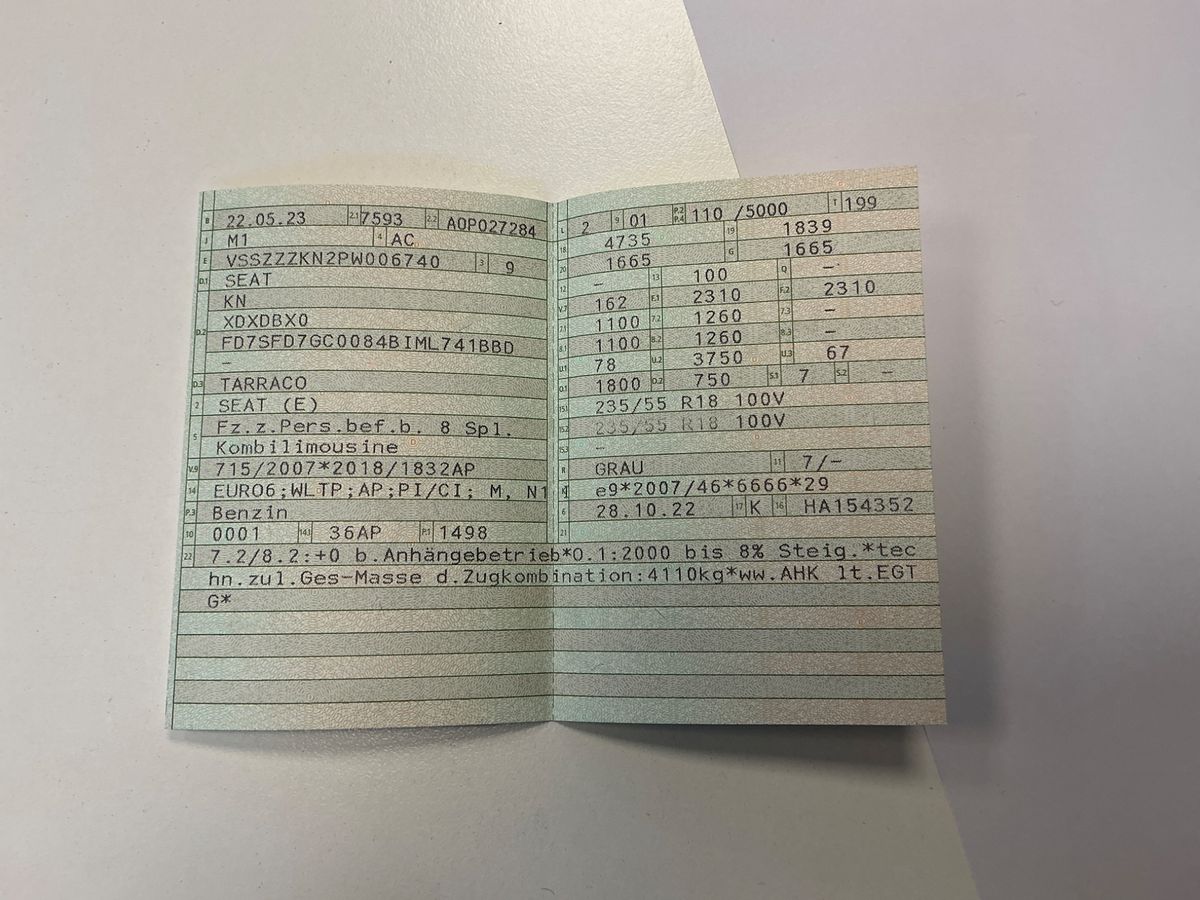 B 22.05.23 2.1 7593 2.2 AOP027284
J M1 4 AC
E VSSZZZKN2PW006740 3 9
D.1 SEAT
KN
D.2 XDXDBX0
FD7SFD7GC0084BIML741BBD
–
D.3 TARRACO
2 SEAT (E)
5 Fz.z.Pers.bef.b. 8 Spl.
Kombilimousine
V.9 715/2007*2018/1832AP
14 EURO6;WLTP;AP;PI/CI; M, N1
P.3 Benzin
10 0001 14.1 36AP P.1 1498
L 2 9 01 P.2 P.4 110 /5000 T 199
18 4735 19 1839
20 1665 G 1665
12 – 13 100 Q –
V.7 162 F.1 2310 F.2 2310
7.1 1100 7.2 1260 7.3 –
8.1 1100 8.2 1260 8.3 –
U.1 78 U.2 3750 U.3 67
O.1 1800 O.2 750 S.1 7 S.2 –
15.1 235/55 R18 100V
15.2 235/55 R18 100V
15.3 –
R GRAU 11 7/–
K e9*2007/46*6666*29
6 28.10.22 17 K 16 HA154352
21
22 7.2/8.2:+0 b.Anhängebetrieb*O.1:2000 bis 8% Steig.*tec
hn.zul.Ges-Masse d.Zugkombination:4110kg*ww.AHK lt.EGT
G*